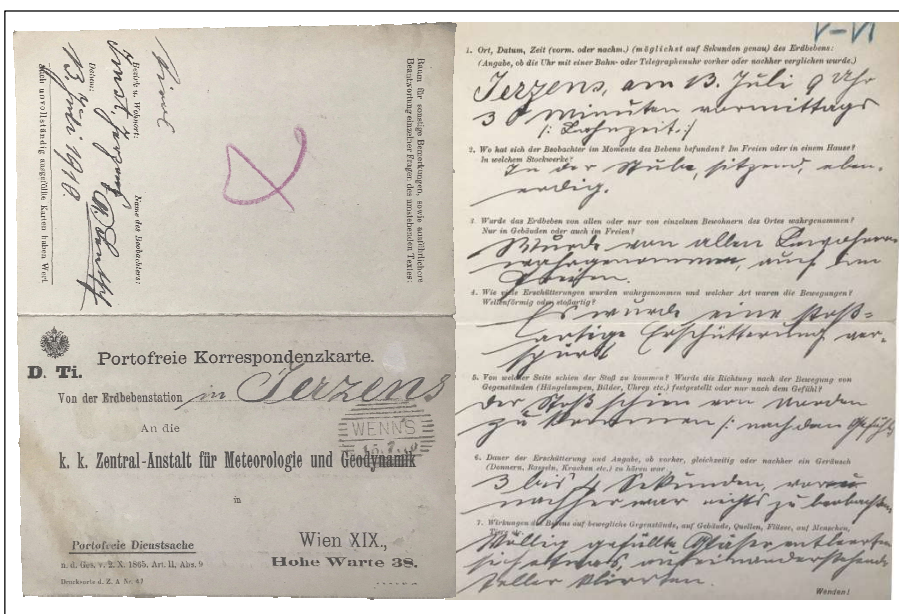 Raum für sonstige Bemerkungen, sowie ausführlichere
Beantwortung einzelner Fragen des umstehenden Textes:
Name des Beobachters:
Bezirk u. Wohnort:
Imst, Jerzens
Datum:
13. Juli 1910.
Nach unvollständig ausgefüllte Karten haben Wert
D. Ti.
Portofreie Korrespondenzkarte.
Von der Erdbebenstation in Jerzens
WENNS
An die
k. k. Zentral-Anstalt für Meteorologie und Geodynamik
in
Wien XIX.,
Hohe Warte 38.
Portofreie Dienstsache
n. d. Ges. v. 2. X. 1865. Art. II, Abs. 9
Drucksorte d. Z. A Nr. 47
V-VI
1. Ort, Datum, Zeit (vorm. oder nachm.) (möglichst auf Sekunden genau) des Erdbebens:
(Angabe, ob die Uhr mit einer Bahn- oder Telegraphenuhr vorher oder nachher verglichen wurde.)
Jerzens, am 13. Juli 9 Uhr
30 Minuten vormittags
/: Bahnzeit. :/
2. Wo hat sich der Beobachter im Momente des Bebens befunden? Im Freien oder in einem Hause?
In welchem Stockwerke?
In der Stube, sitzend, eben-
erdig.
3. Wurde das Erdbeben von allen oder nur von einzelnen Bewohnern des Ortes wahrgenommen?
Nur in Gebäuden oder auch im Freien?
Wurde von allen Bewohnern
wahrgenommen, auch im
Freien.
4. Wie viele Erschütterungen wurden wahrgenommen und welcher Art waren die Bewegungen?
Wellenförmig oder stoßartig?
Es wurde eine stoß-
artige Erschütterung ver-
spürt
5. Von welcher Seite schien der Stoß zu kommen? Wurde die Richtung nach der Bewegung von
Gegenständen (Hängelampen, Bilder, Uhren etc.) festgestellt oder nur nach dem Gefühl?
Der Stoß schien von Norden
zu kommen /: nach dem Gefühl
6. Dauer der Erschütterung und Angabe, ob vorher, gleichzeitig oder nachher ein Geräusch
(Donnern, Rasseln, Krachen etc.) zu hören war.
3 bis 4 Sekunden, vor u
nachher war nichts zu beobachten
7. Wirkungen des Bebens auf bewegliche Gegenstände, auf Gebäude, Quellen, Flüsse, auf Menschen,
Tiere etc.
Völlig gefüllte Gläser entleerten
sich etwas, aufeinanderstehende
Teller klirrten.
Wenden!